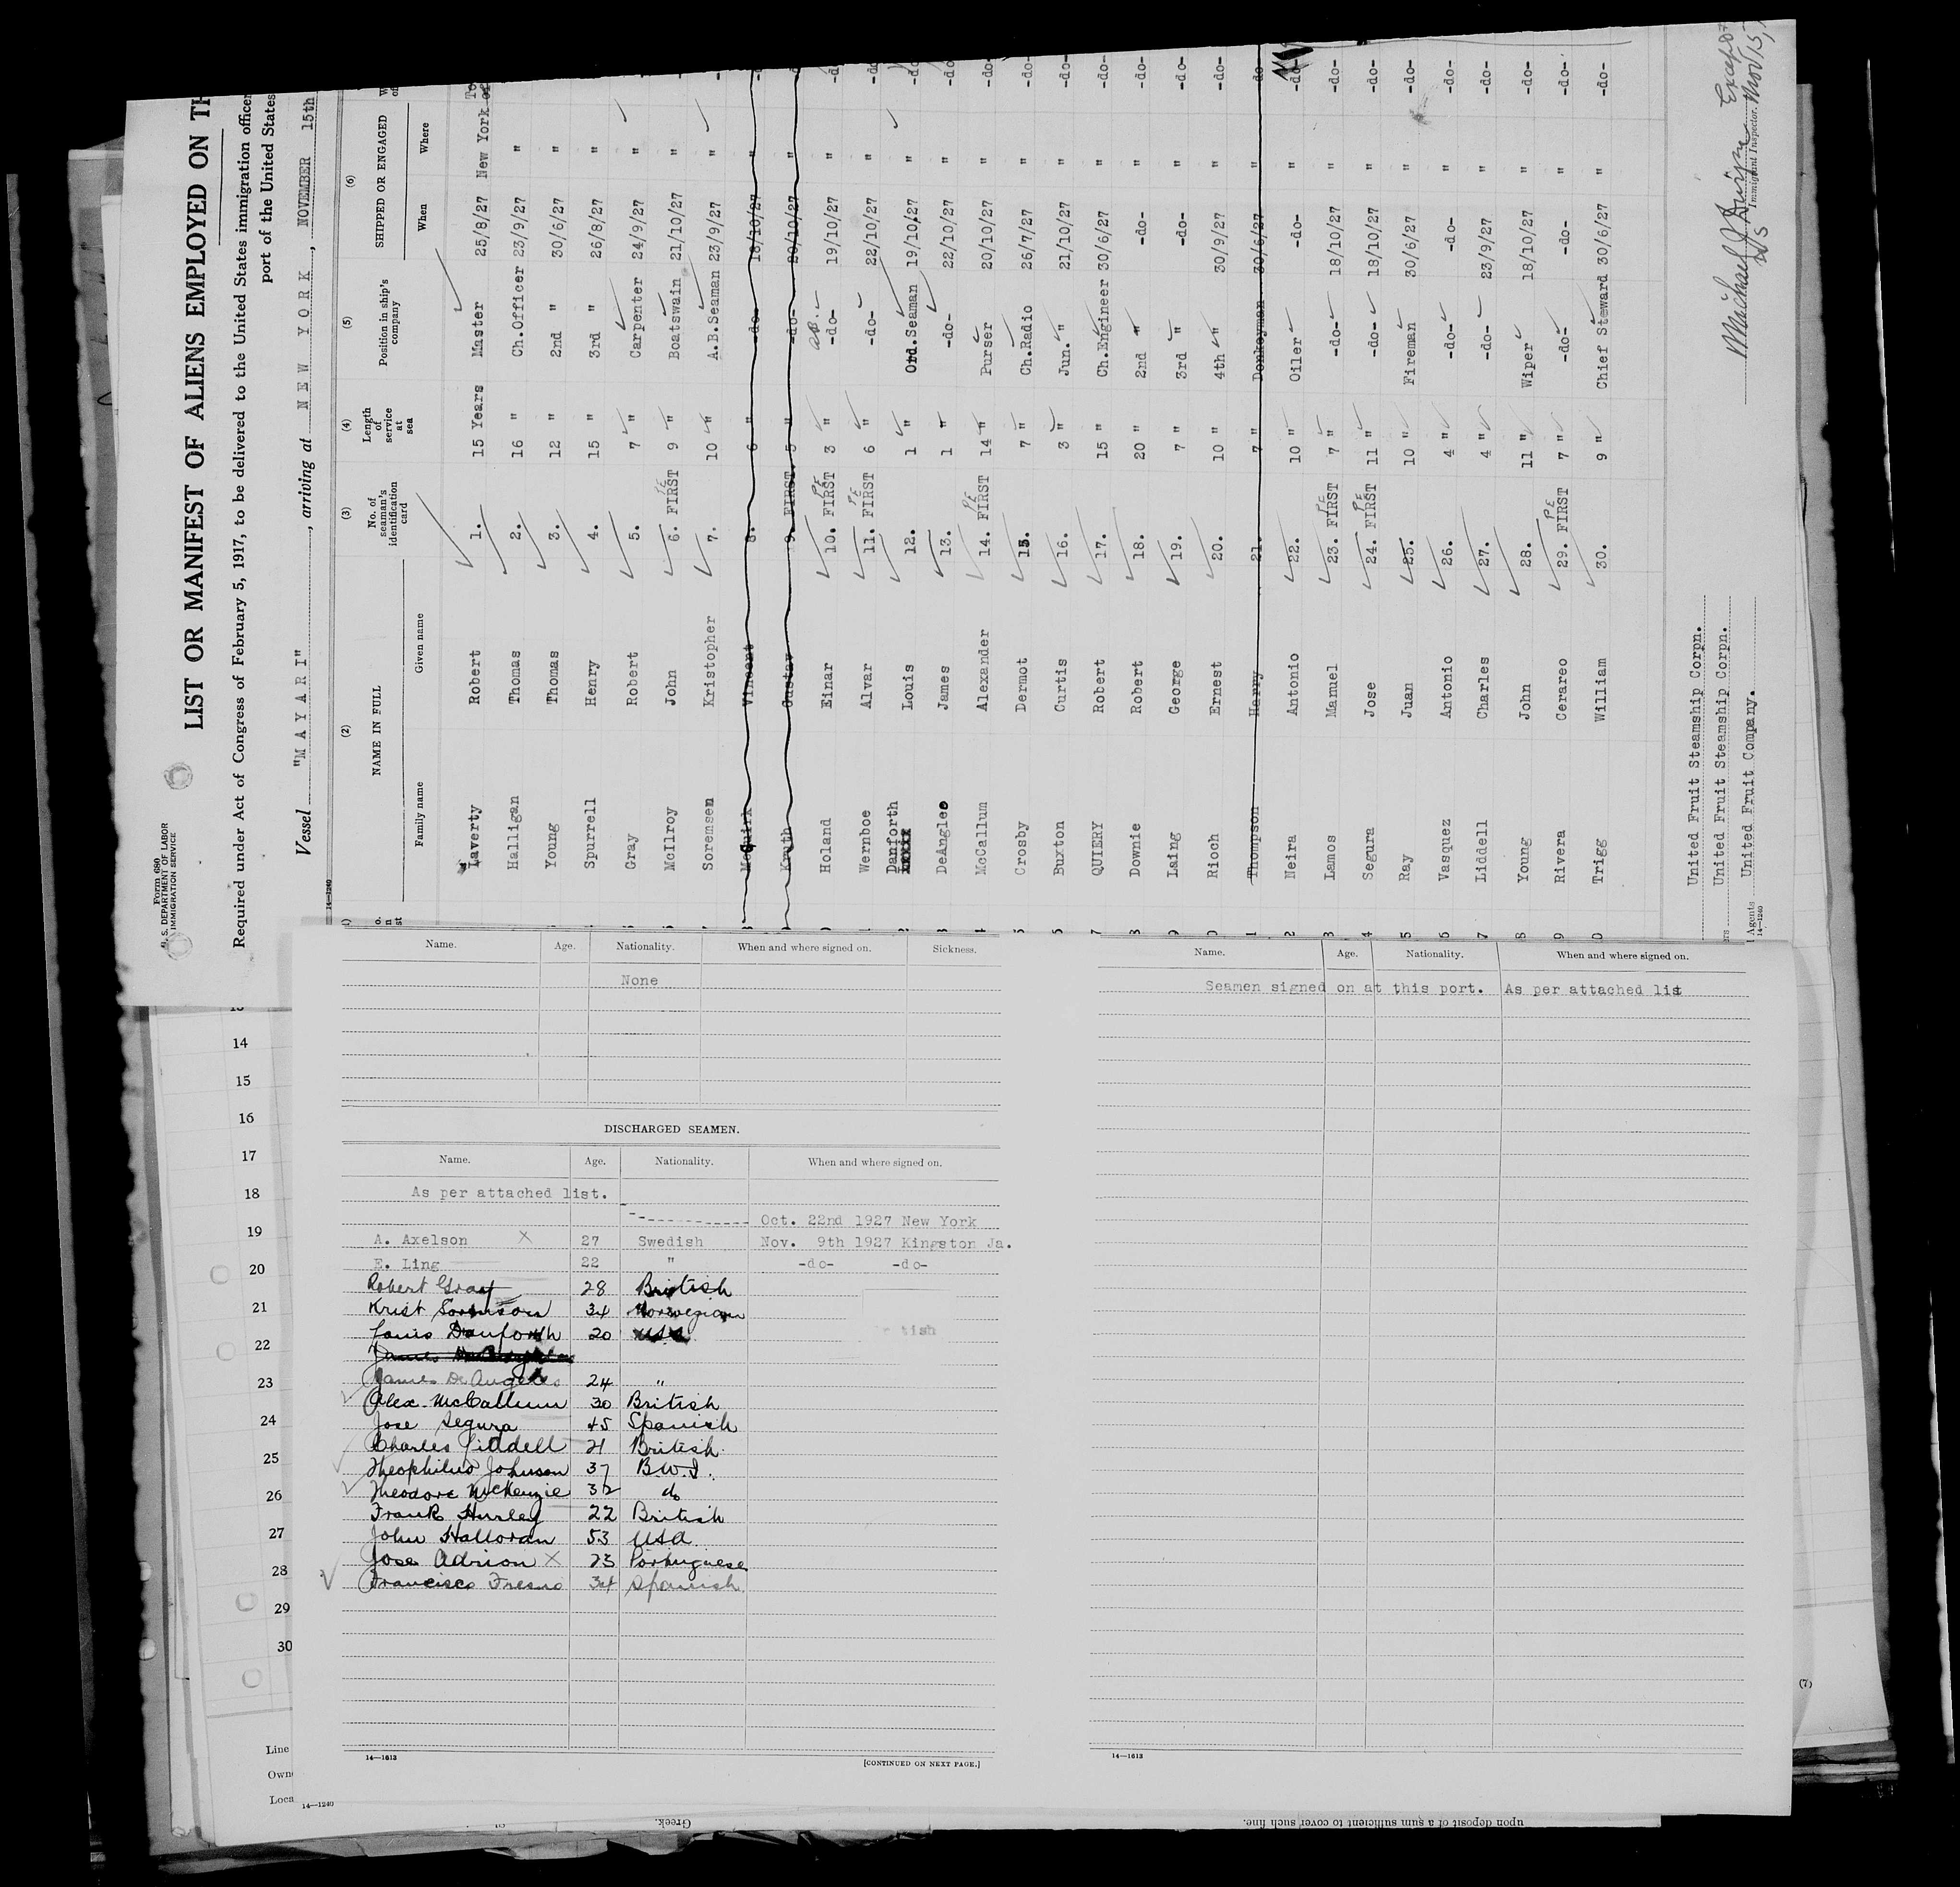 Form 680
U. S. DEPARTMENT OF LABOR
IMMIGRATION SERVICE
LIST OR MANIFEST OF ALIENS EMPLOYED ON TH
Required under Act of Congress of February 5, 1917, to be delivered to the United States immigration officer
port of the United States
Vessel "MAYARI", arriving at NEW YORK, NOVEMBER 15th
14—1240
(2) (3) (4) (5) (6)
NAME IN FULL No. of seaman's identification card Length of service at sea Position in ship's company SHIPPED OR ENGAGED
Family name Given name When Where
Laverty Robert 1. 15 Years Master 25/8/27 New York
Halligan Thomas 2. 16 " Ch.Officer 23/9/27 " -do-
Young Thomas 3. 12 " 2nd " 30/6/27 "
Spurrell Henry 4. 15 " 3rd " 26/8/27 "
Gray Robert 5. 7 " Carpenter 24/9/27 "
McIlroy John 6. FIRST 9 " Boatswain 21/10/27 "
Soremsen Kristopher 7. 10 " A.B.Seaman 23/9/27 "
McQuirk Vincent 8. 6 " -do- 18/10/27 "
Knuth Gustav 9. FIRST. 5 " -do- 20/10/27 "
Holand Einar 10. FIRST 3 " -do- 19/10/27 " -do-
Wernboe Alvar 11. FIRST 6 " -do- 22/10/27 " -do-
Danforth Louis 12. 1 " Ord.Seaman 19/10/27 " -do-
DeAngleo James 13. 1 " -do- 22/10/27 " -do-
McCallum Alexander 14. FIRST 14 " Purser 20/10/27 " -do-
Crosby Dermot 15. 7 " Ch.Radio 26/7/27 " -do-
Buxton Curtis 16. 3 " Jun. " 21/10/27 " -do-
QUIERY Robert 17. 15 " Ch.Engineer 30/6/27 " -do-
Downie Robert 18. 20 " 2nd " -do- " -do-
Laing George 19. 7 " 3rd " -do- " -do-
Rioch Ernest 20. 10 " 4th " 30/9/27 " -do-
Thompson Harry 21. 7 " Donkeyman 30/6/27 " -do-
Neira Antonio 22. 10 " Oiler -do- " -do-
Lamos Manuel 23. FIRST 7 " -do- 18/10/27 " -do-
Segura Jose 24. FIRST 11 " -do- 18/10/27 " -do-
Ray Juan 25. 10 " Fireman 30/6/27 " -do-
Vasquez Antonio 26. 4 " -do- -do- " -do-
Liddell Charles 27. 4 " -do- 23/9/27 " -do-
Young John 28. 11 " Wiper 18/10/27 " -do-
Rivera Cerareo 29. FIRST 7 " -do- -do- " -do-
Trigg William 30. 9 " Chief Steward 30/6/27 " -do-
United Fruit Steamship Corpn.
United Fruit Steamship Corpn.
Agents United Fruit Company.
14—1240
Immigrant Inspector.
Name. Age. Nationality. When and where signed on. Sickness.
None
DISCHARGED SEAMEN.
Name. Age. Nationality. When and where signed on.
As per attached list.
Oct. 22nd 1927 New York
A. Axelson X 27 Swedish Nov. 9th 1927 Kingston Ja.
E. Ling 22 " -do- -do-
Robert Gray 28 British
Krist Sorenson 34 Norwegian
Louis Danforth 20 USA
James De Angelo 24 "
Alex. McCallum 30 British
Jose Segura 45 Spanish
Charles Liddell 21 British
Theophilus Johnson 37 B.W.I.
Theodore McKenzie 32 do
Frank Hurley 22 British
John Halloran 53 USA
Jose Adrion X 23 Portuguese
Francisco Fresno 34 Spanish
14—1613
[CONTINUED ON NEXT PAGE.]
14—1240
Name. Age. Nationality. When and where signed on.
Seamen signed on at this port. As per attached list
14—1613
14
15
16
17
18
19
20
21
22
23
24
25
26
27
28
29
30
Line
Own
Loca
(7)
Greek.
upon deposit of a sum sufficient to cover such fine.